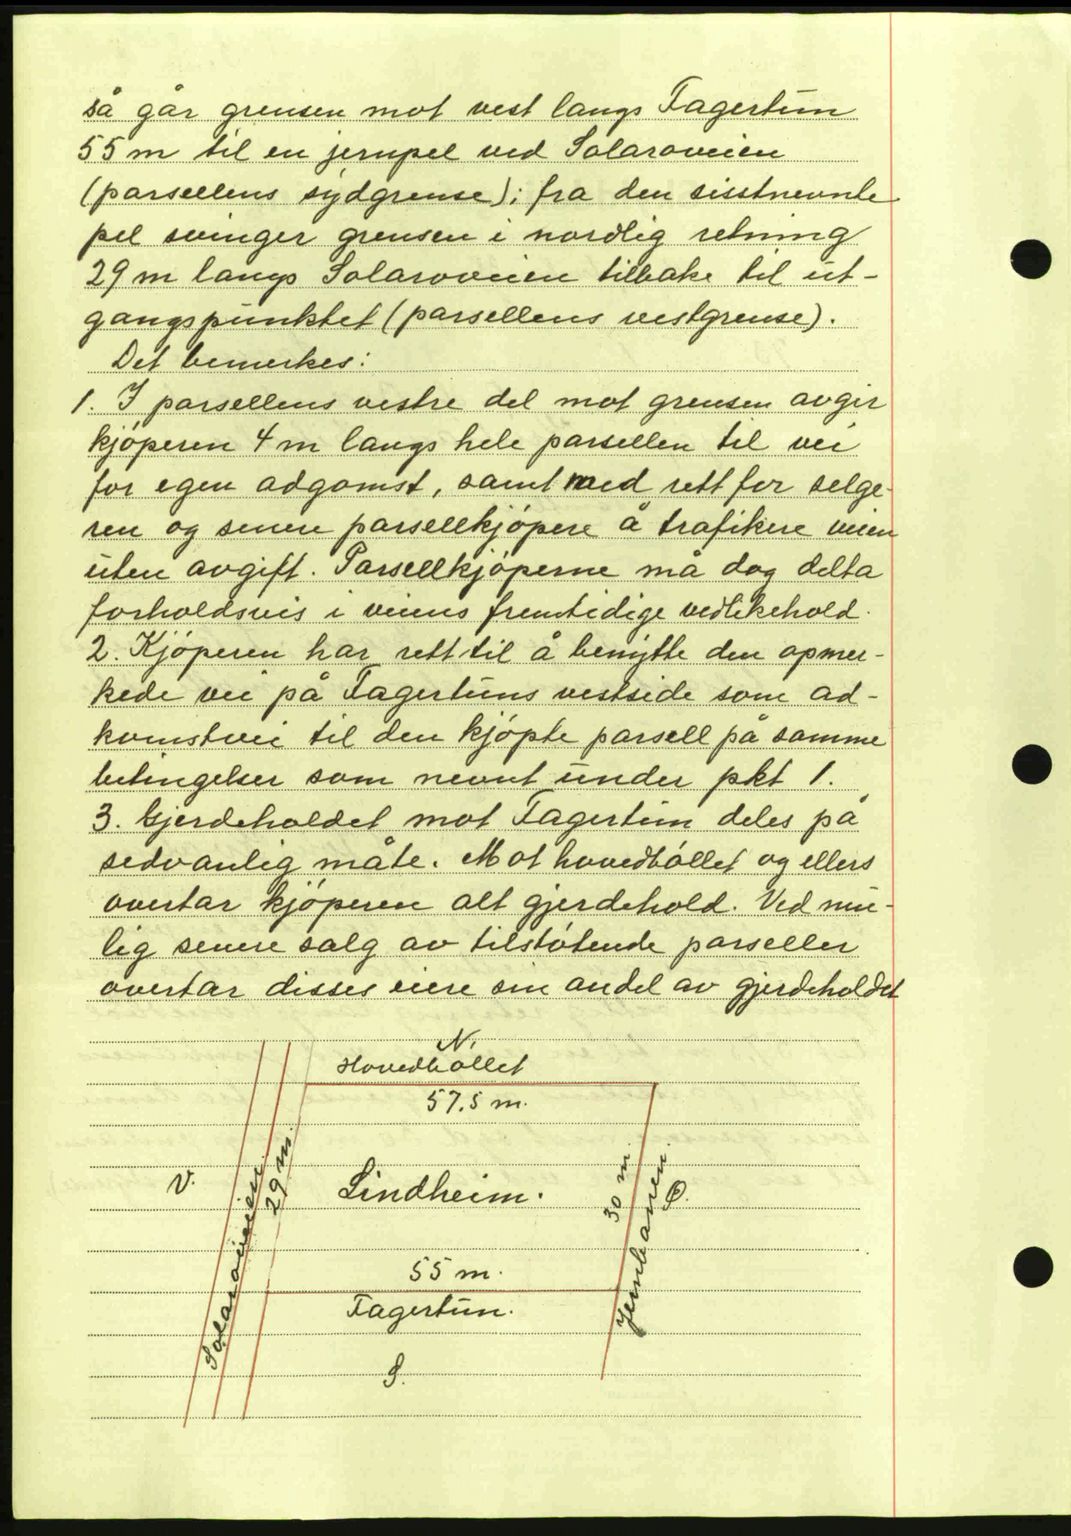 så går grensen mot vest langs Fagertun
55 m til en jernpel ved Solaroveien
(parsellens sydgrense); fra den sisstnevnte
pel svinger grensen i nordlig retning
29 m langs Solaroveien tilbake til ut-
gangspunktet (parsellens vestgrense).
Det bemerkes:
1. I parsellens vestre del mot grensen avgir
kjøperen 4 m langs hele parsellen til vei
for egen adgomst, samt med rett for selge-
ren og senere parsellkjøpere å trafikere veien
uten avgift. Parsellkjøperne må dog delta
forholdsvis i veiens fremtidige vedlikehold.
2. Kjøperen har rett til å benytte den opmer-
kede vei på Fagertuns vestside som ad-
komstvei til den kjøpte parsell på samme
betingelser som nevnt under pkt 1.
3. Gjerdeholdet mot Fagertun deles på
sedvanlig måte. Mot hovedbøllet og ellers
overtar kjøperen alt gjerdehold. Ved mu-
lig senere salg av tilstøtende parseller
overtar disses eiere sin andel av gjerdeholdet
N.
Hovedbøllet
57,5 m.
V.
Solaroveien
29 m.
Lindheim.
30 m.
Jernbanen.
Ø.
55 m.
Fagertun.
S.